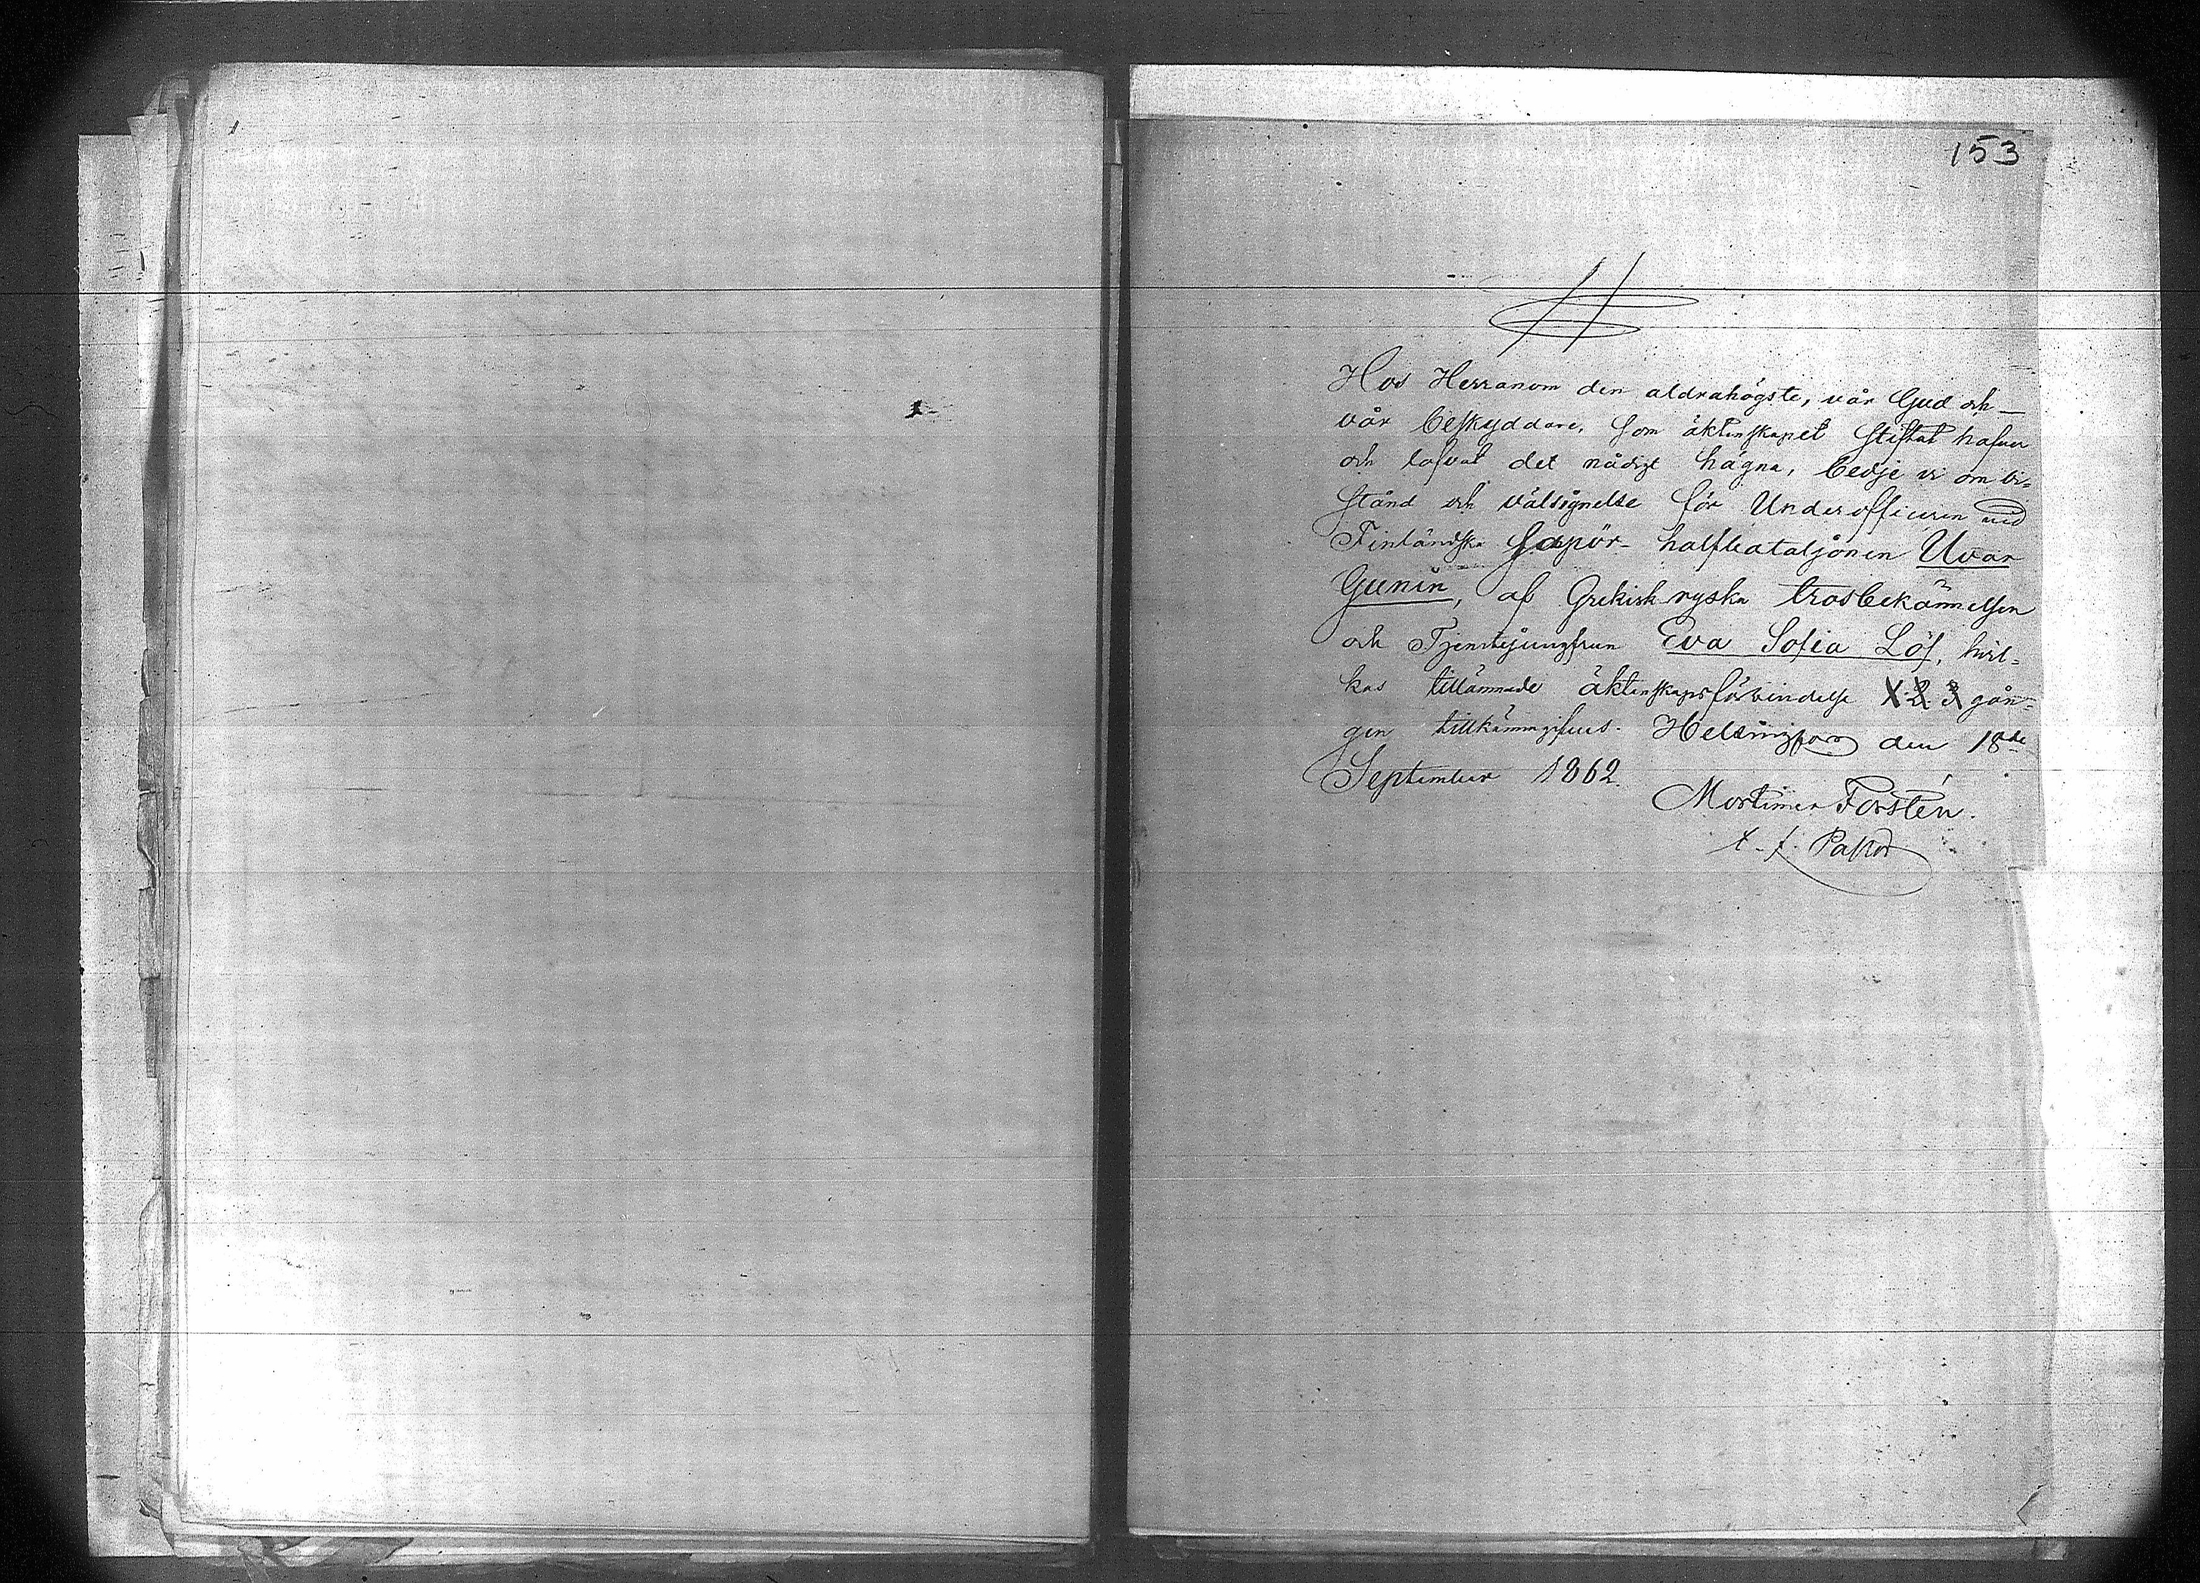 153
Hos Herranom den aldrahögste, vår Gud och
vår beskyddare, som äktenskapet stiftat hafver
och lofvat det nådigt hägna, bedje vi om bi-
stånd och välsignelse för Underofficeren vid
Finländska Sapör-halfbataljonen Uvar
Gunin, af Grekisk ryska trosbekännelsen
och Tjenstejungfrun Eva Sofia Löf, hvil-
kas tillämnade äktenskapsförbindelse 1 2 3 gån-
gen tillkännagifves. Helsingfors den 18de
September 1862.
Mortimer Forstén.
t. f. Pastor